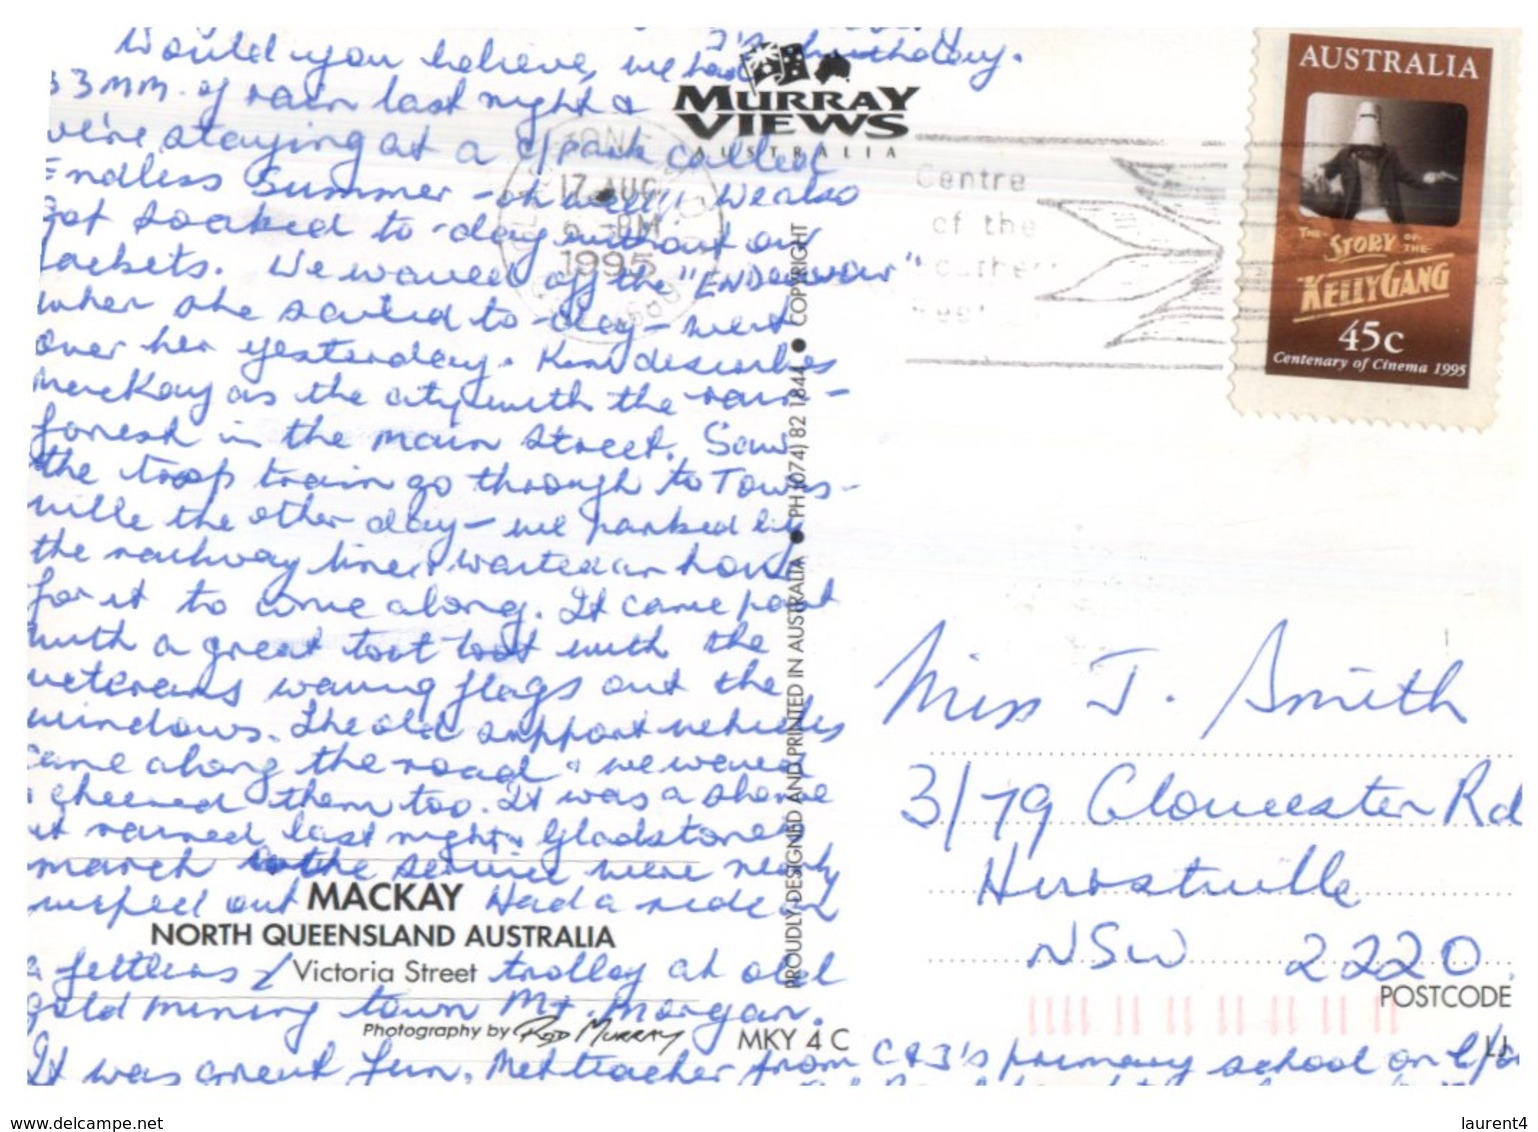 J's birthday.
Would you believe, we had
33mm. of rain last night &
we're staying at a c/park called
Endless Summer - oh well! We also
got soaked to-day without our
jackets. We waved off the "ENDeavour"
when she sailed to-day - went
over her yesterday. Kim describes
MacKay as the city with the rain-
forest in the main street. Saw
the troop train go through to Towns-
ville the other day - we parked by
the railway line & waited an hour
for it to come along. It came past
with a great toot toot with the
veterans waving flags out the
windows. The old support vehicles
came along the road & we waved
& cheered them too. It was a shame
it rained last night & Gladstone's
march to the service were nearly
wiped out Had a ride on
a fettlers / trolley at old
gold mining town Mt. Morgan.
It was great fun. Met teacher from C & J's primary school on c/p
MURRAY
VIEWS
AUSTRALIA
MACKAY
NORTH QUEENSLAND AUSTRALIA
Victoria Street
Photography by Rod Murray
MKY 4 C
PROUDLY DESIGNED AND PRINTED IN AUSTRALIA ● PH (074) 82 1844 ● COPYRIGHT
17 AUG
6 - PM
1995
Centre
of the
Southern
Reef
AUSTRALIA
THE STORY OF THE
KELLY GANG
45c
Centenary of Cinema 1995
Miss J. Smith
3/79 Gloucester Rd
Hurstville
NSW 2220
POSTCODE
LJ
www.delcampe.net
laurent4